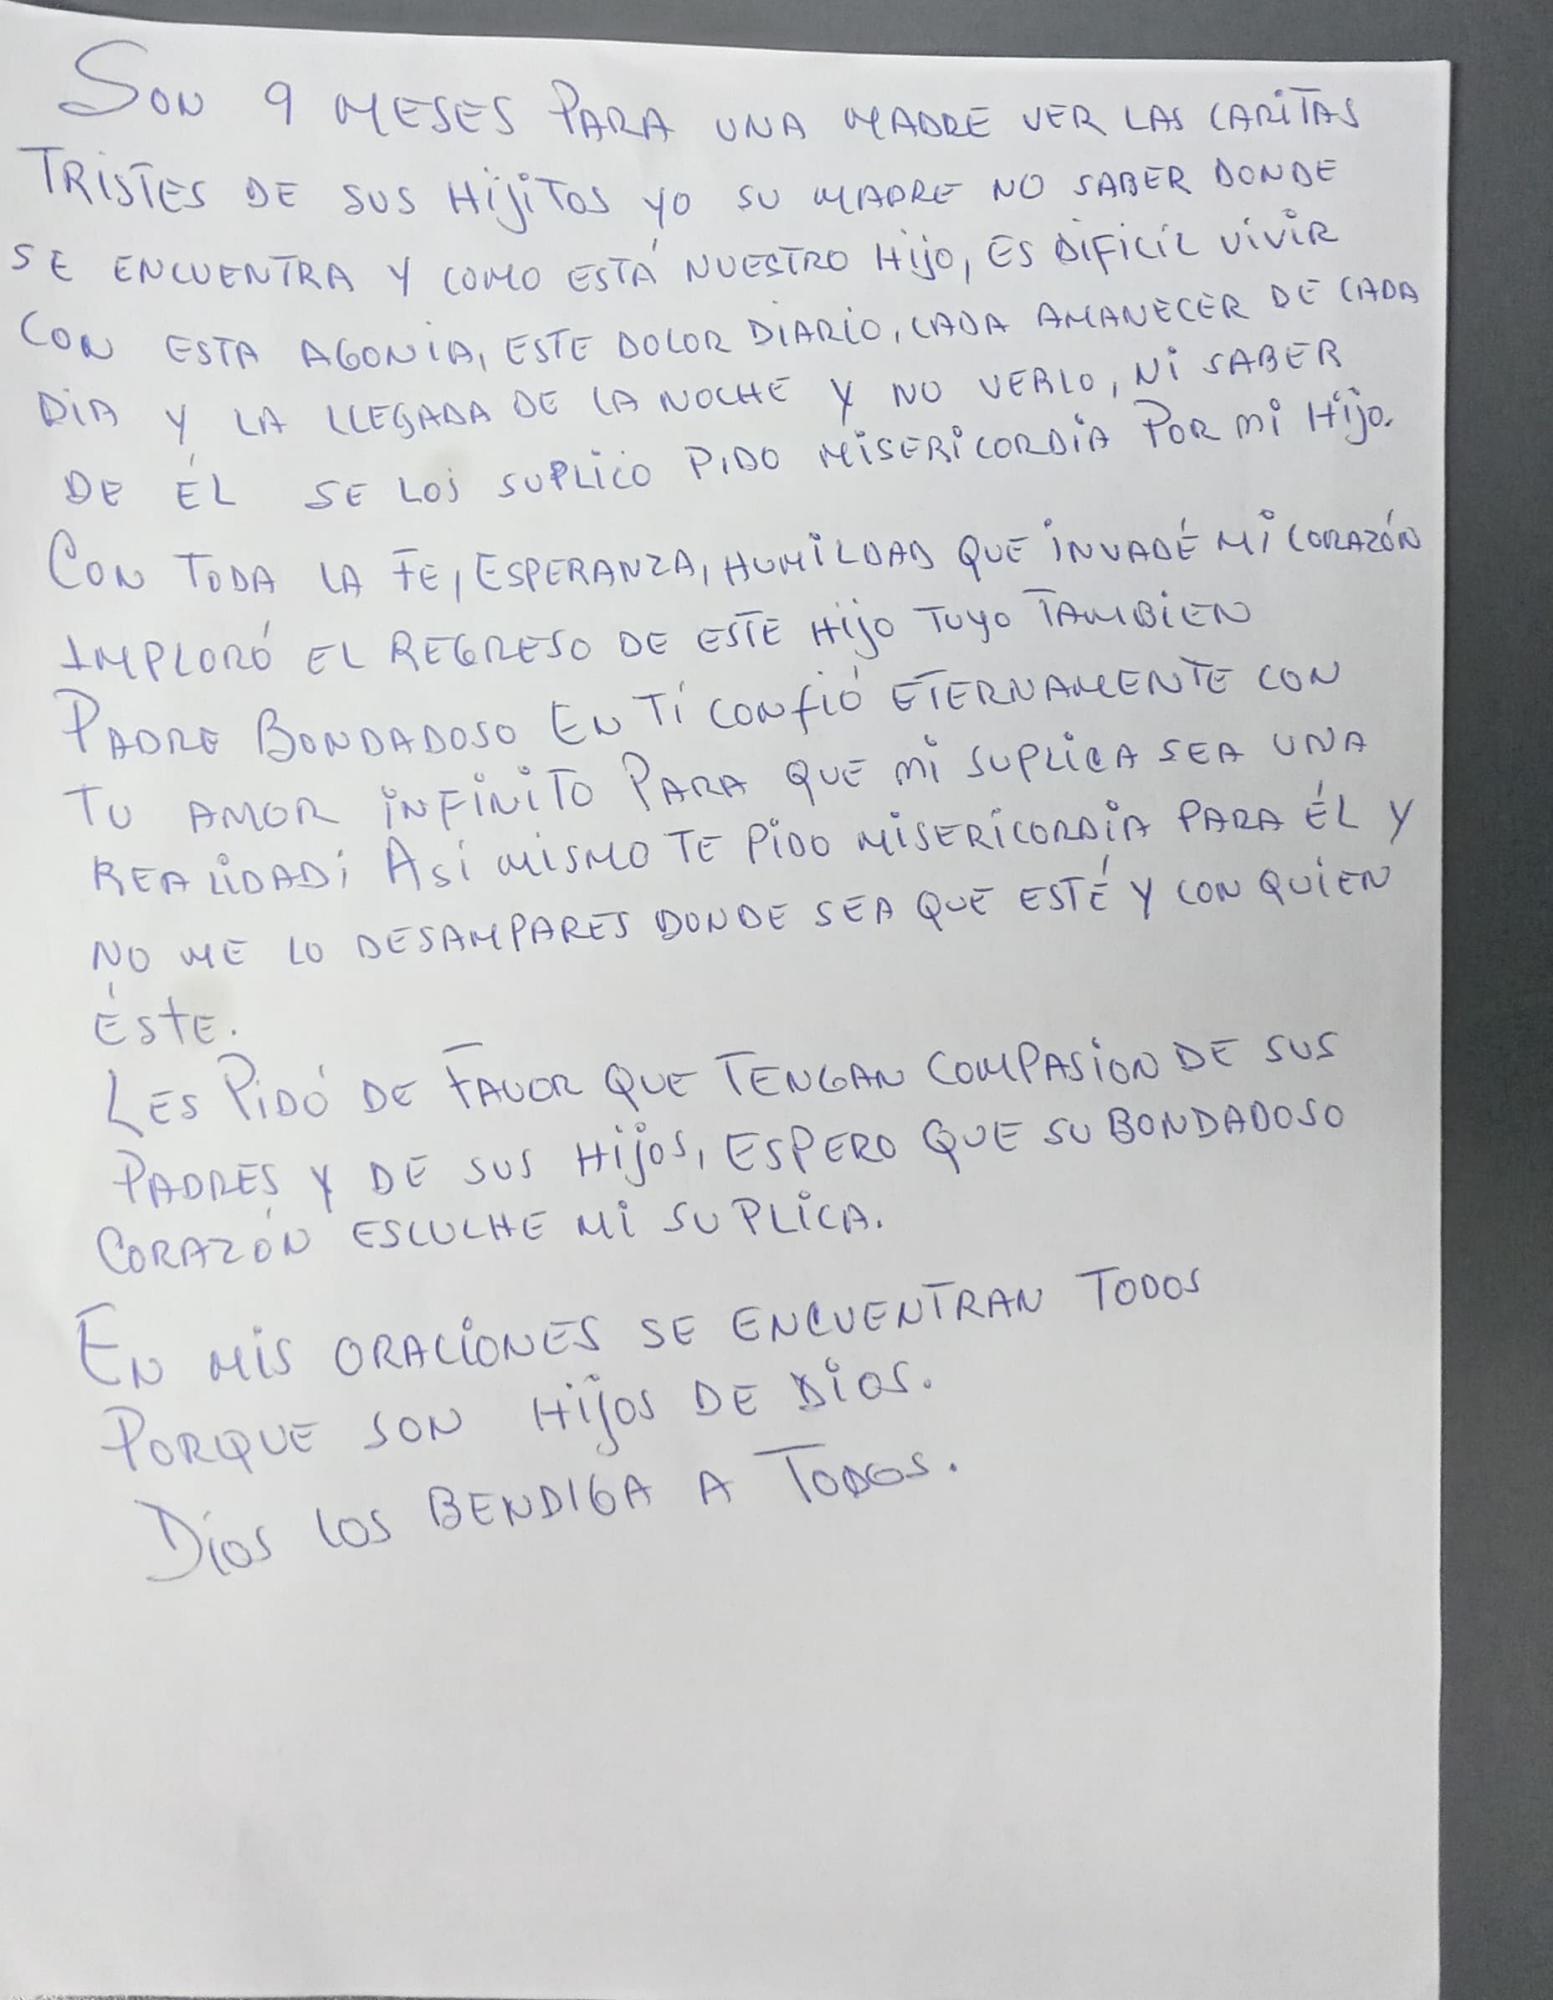 SON 9 MESES PARA UNA MADRE VER LAS CARITAS
TRISTES DE SUS HIJITOS YO SU MADRE NO SABER DONDE
SE ENCUENTRA Y COMO ESTÁ NUESTRO HIJO, ES DIFICIL VIVIR
CON ESTA AGONIA, ESTE DOLOR DIARIO, CADA AMANECER DE CADA
DIA Y LA LLEGADA DE LA NOCHE Y NO VERLO, NI SABER
DE ÉL SE LOS SUPLICO PIDO MISERICORDIA POR MI HIJO.
CON TODA LA FE, ESPERANZA, HUMILDAD QUE INVADÉ MI CORAZÓN
IMPLORÓ EL REGRESO DE ESTE HIJO TUYO TAMBIEN
PADRE BONDADOSO EN TÍ CONFIÓ ETERNAMENTE CON
TU AMOR INFINITO PARA QUE MI SUPLICA SEA UNA
REALIDAD; ASÍ MISMO TE PIDO MISERICORDIA PARA ÉL Y
NO ME LO DESAMPARES DONDE SEA QUE ESTÉ Y CON QUIEN
ÉSTE.
LES PIDÓ DE FAVOR QUE TENGAN COMPASION DE SUS
PADRES Y DE SUS HIJOS, ESPERO QUE SU BONDADOSO
CORAZÓN ESCUCHE MI SUPLICA.
EN MIS ORACIONES SE ENCUENTRAN TODOS
PORQUE SON HIJOS DE DIOS.
DIOS LOS BENDIGA A TODOS.